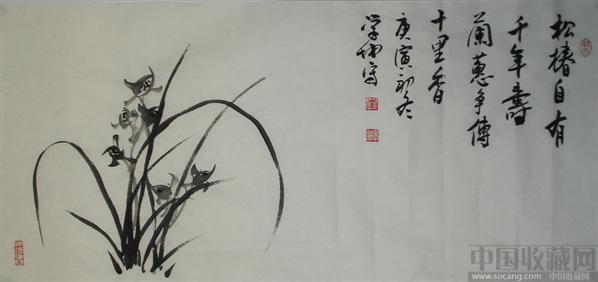 松椿自有
千年壽
蘭蕙争傳
十里香
庚寅初冬
学坤写
中国收藏网
www.socang.com